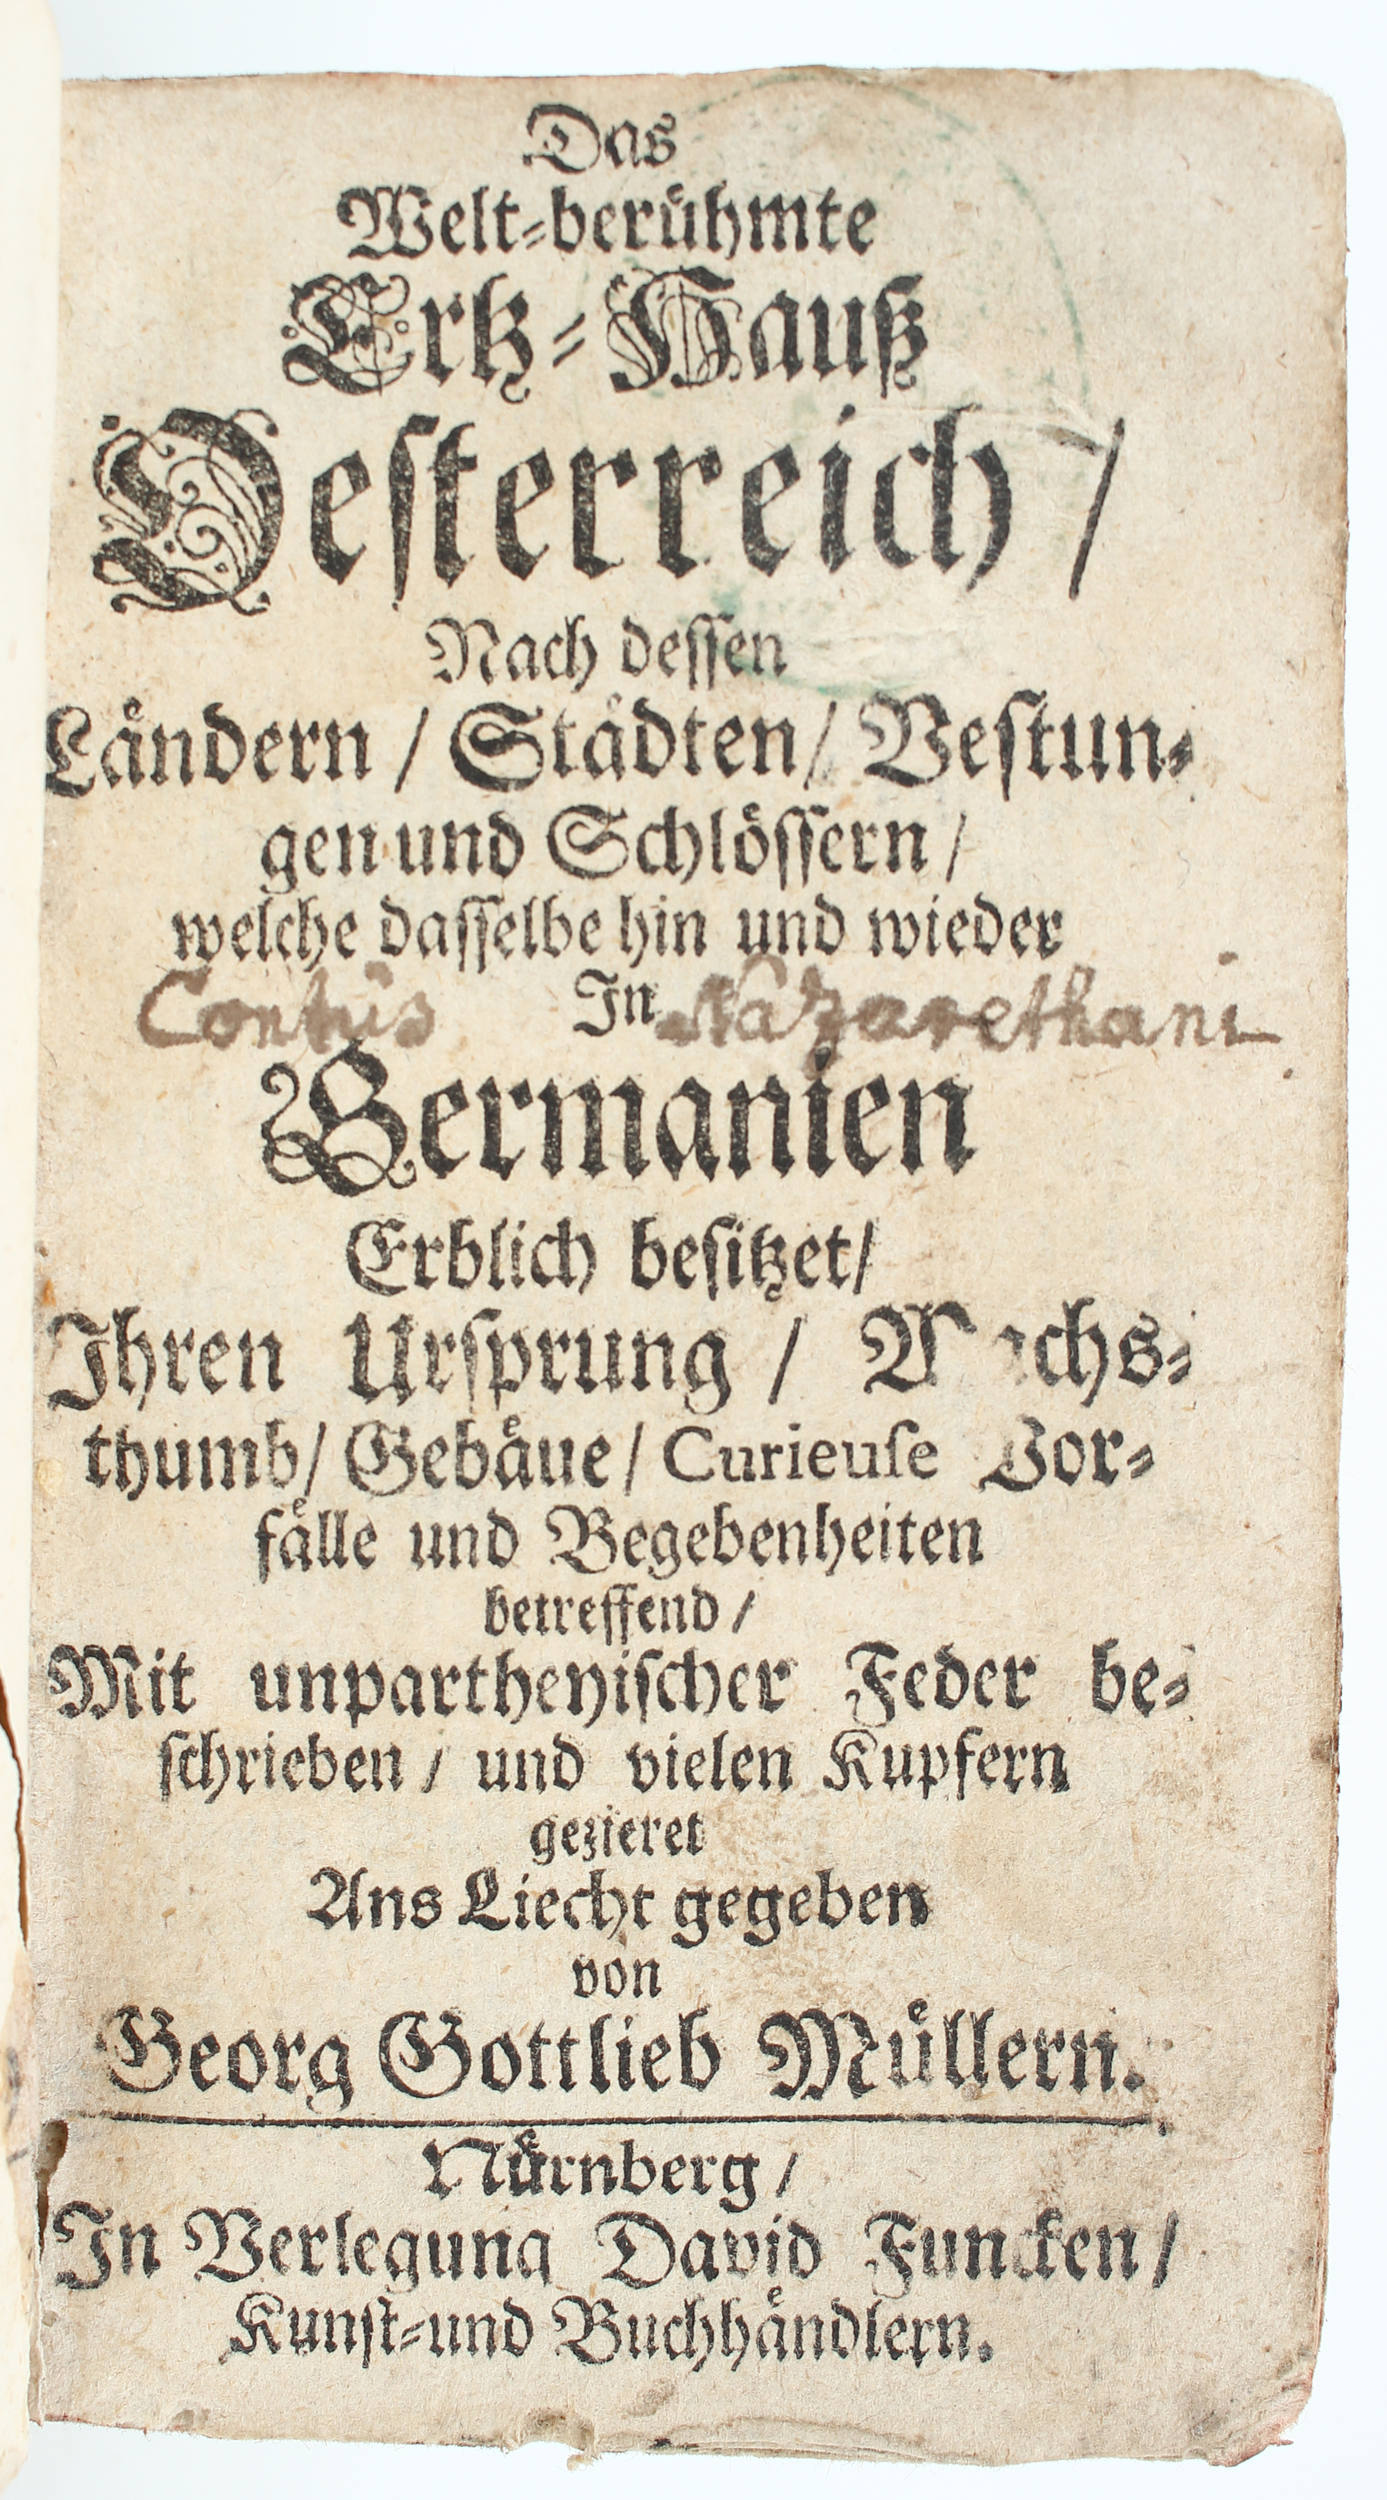 Das
Welt-berühmte
Ertz-Hauß
Oesterreich /
Nach dessen
Ländern / Städten / Vestun-
gen und Schlössern /
welche dasselbe hin und wieder
In Nazarethani
Germanien
Erblich besitzet /
Ihren Ursprung / Wachs-
thumb / Gebäue / Curieuse Vor-
fälle und Begebenheiten
betreffend /
Mit unpartheyischer Feder be-
schrieben / und vielen Kupfern
gezieret
Ans Liecht gegeben
von
Georg Gottlieb Müllern.
Nürnberg /
In Verlegung David Funcken /
Kunst- und Buchhändlern.